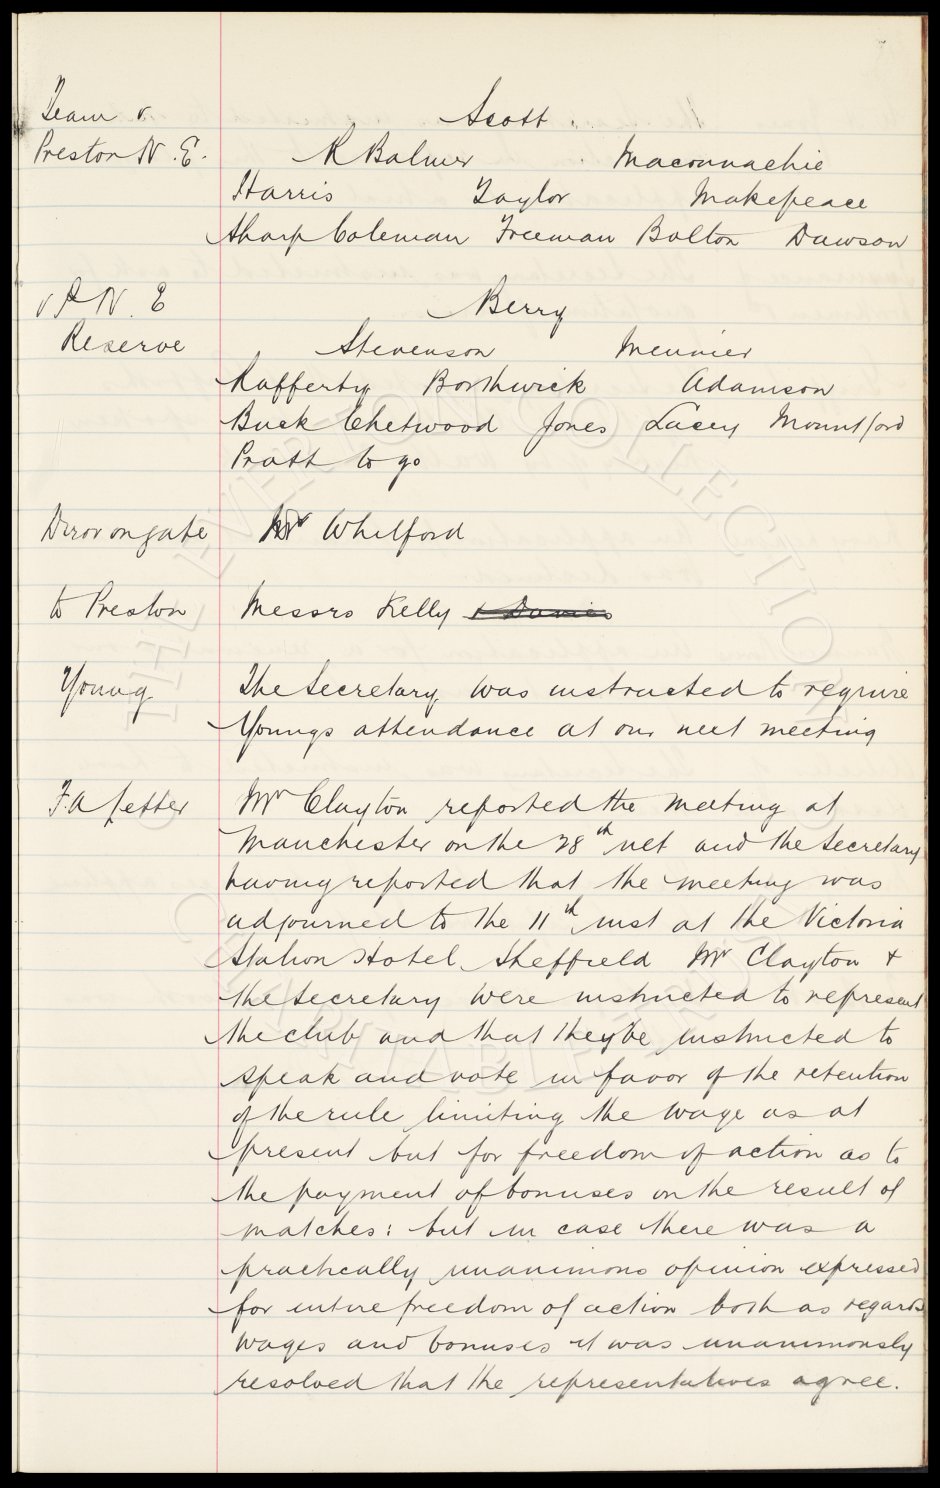 Team v. Scott
Preston N.E. R Balmer Maconnachie
Harris Taylor Makepeace
Sharp Coleman Freeman Bolton Dawson
v P N. E Berry
Reserve Stevenson Meunier
Rafferty Borthwick Adamson
Buck Chetwood Jones Lacey Mountford
Pratt to go
Mr Whitford
to Preston Messrs Kelly & Davies
Young The Secretary was instructed to require
Youngs attendance at our next meeting
F.A letter Mr Clayton reported the meeting at
Manchester on the 28th ult and the Secretary
having reported that the meeting was
adjourned to the 11th inst at the Victoria
Station Hotel Sheffield Mr Clayton &
the Secretary were instructed to represent
the club and that they be instructed to
speak and vote in favor of the retention
of the rule limiting the wage as at
present but for freedom of action as to
the payment of bonuses on the result of
matches: but in case there was a
practically unanimous opinion expressed
for entire freedom of action both as regards
wages and bonuses it was unanimously
resolved that the representatives agree.
THE EVERTON COLLECTION
CHARITABLE TRUST